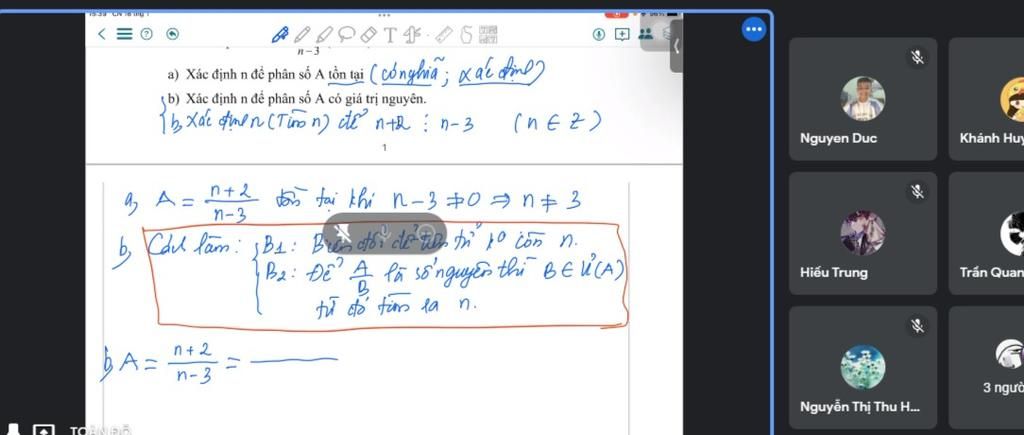 n-3
a) Xác định n để phân số A tồn tại (có nghĩa; xác định)
b) Xác định n để phân số A có giá trị nguyên.
b, Xác định n (Tìm n) để n+2 ⋮ n-3 (n ∈ Z)
1
a, A = n+2 / n-3 tồn tại khi n-3 ≠ 0 ⇒ n ≠ 3
b, Cách làm: B1: Biến đổi để tử còn n.
B2: Để A/B là số nguyên thì B ∈ Ư(A)
từ đó tìm ra n.
b, A = n+2 / n-3 =
Nguyen Duc
Khánh Huy
Hiếu Trung
Trần Quan
Nguyễn Thị Thu H...
3 ngườ